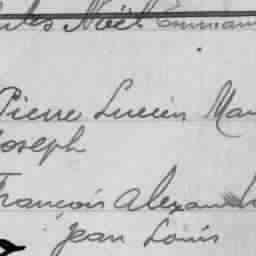 Jules Noël Emmanu
Pierre Lucien Mar
Joseph
François Alexand
Jean Louis